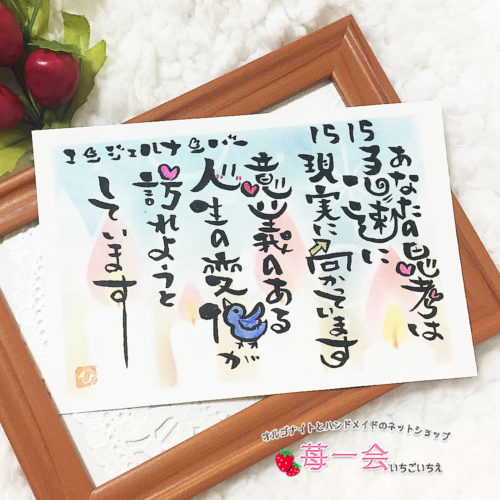 エンジェルナンバー
1515
あなたの思考は
迅速に
現実に向かっています
意義のある
人生の変化が
訪れようと
しています
オルゴナイトとハンドメイドのネットショップ
苺一会 いちごいちえ